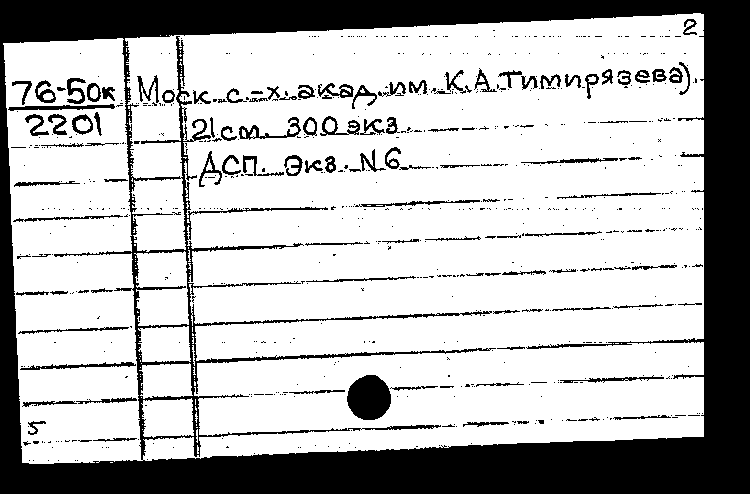 2
76-50к Моск. с.-х. акад. им. К.А.Тимирязева).
2201 21 см. 300 экз.
ДСП. Экз. N6.
5